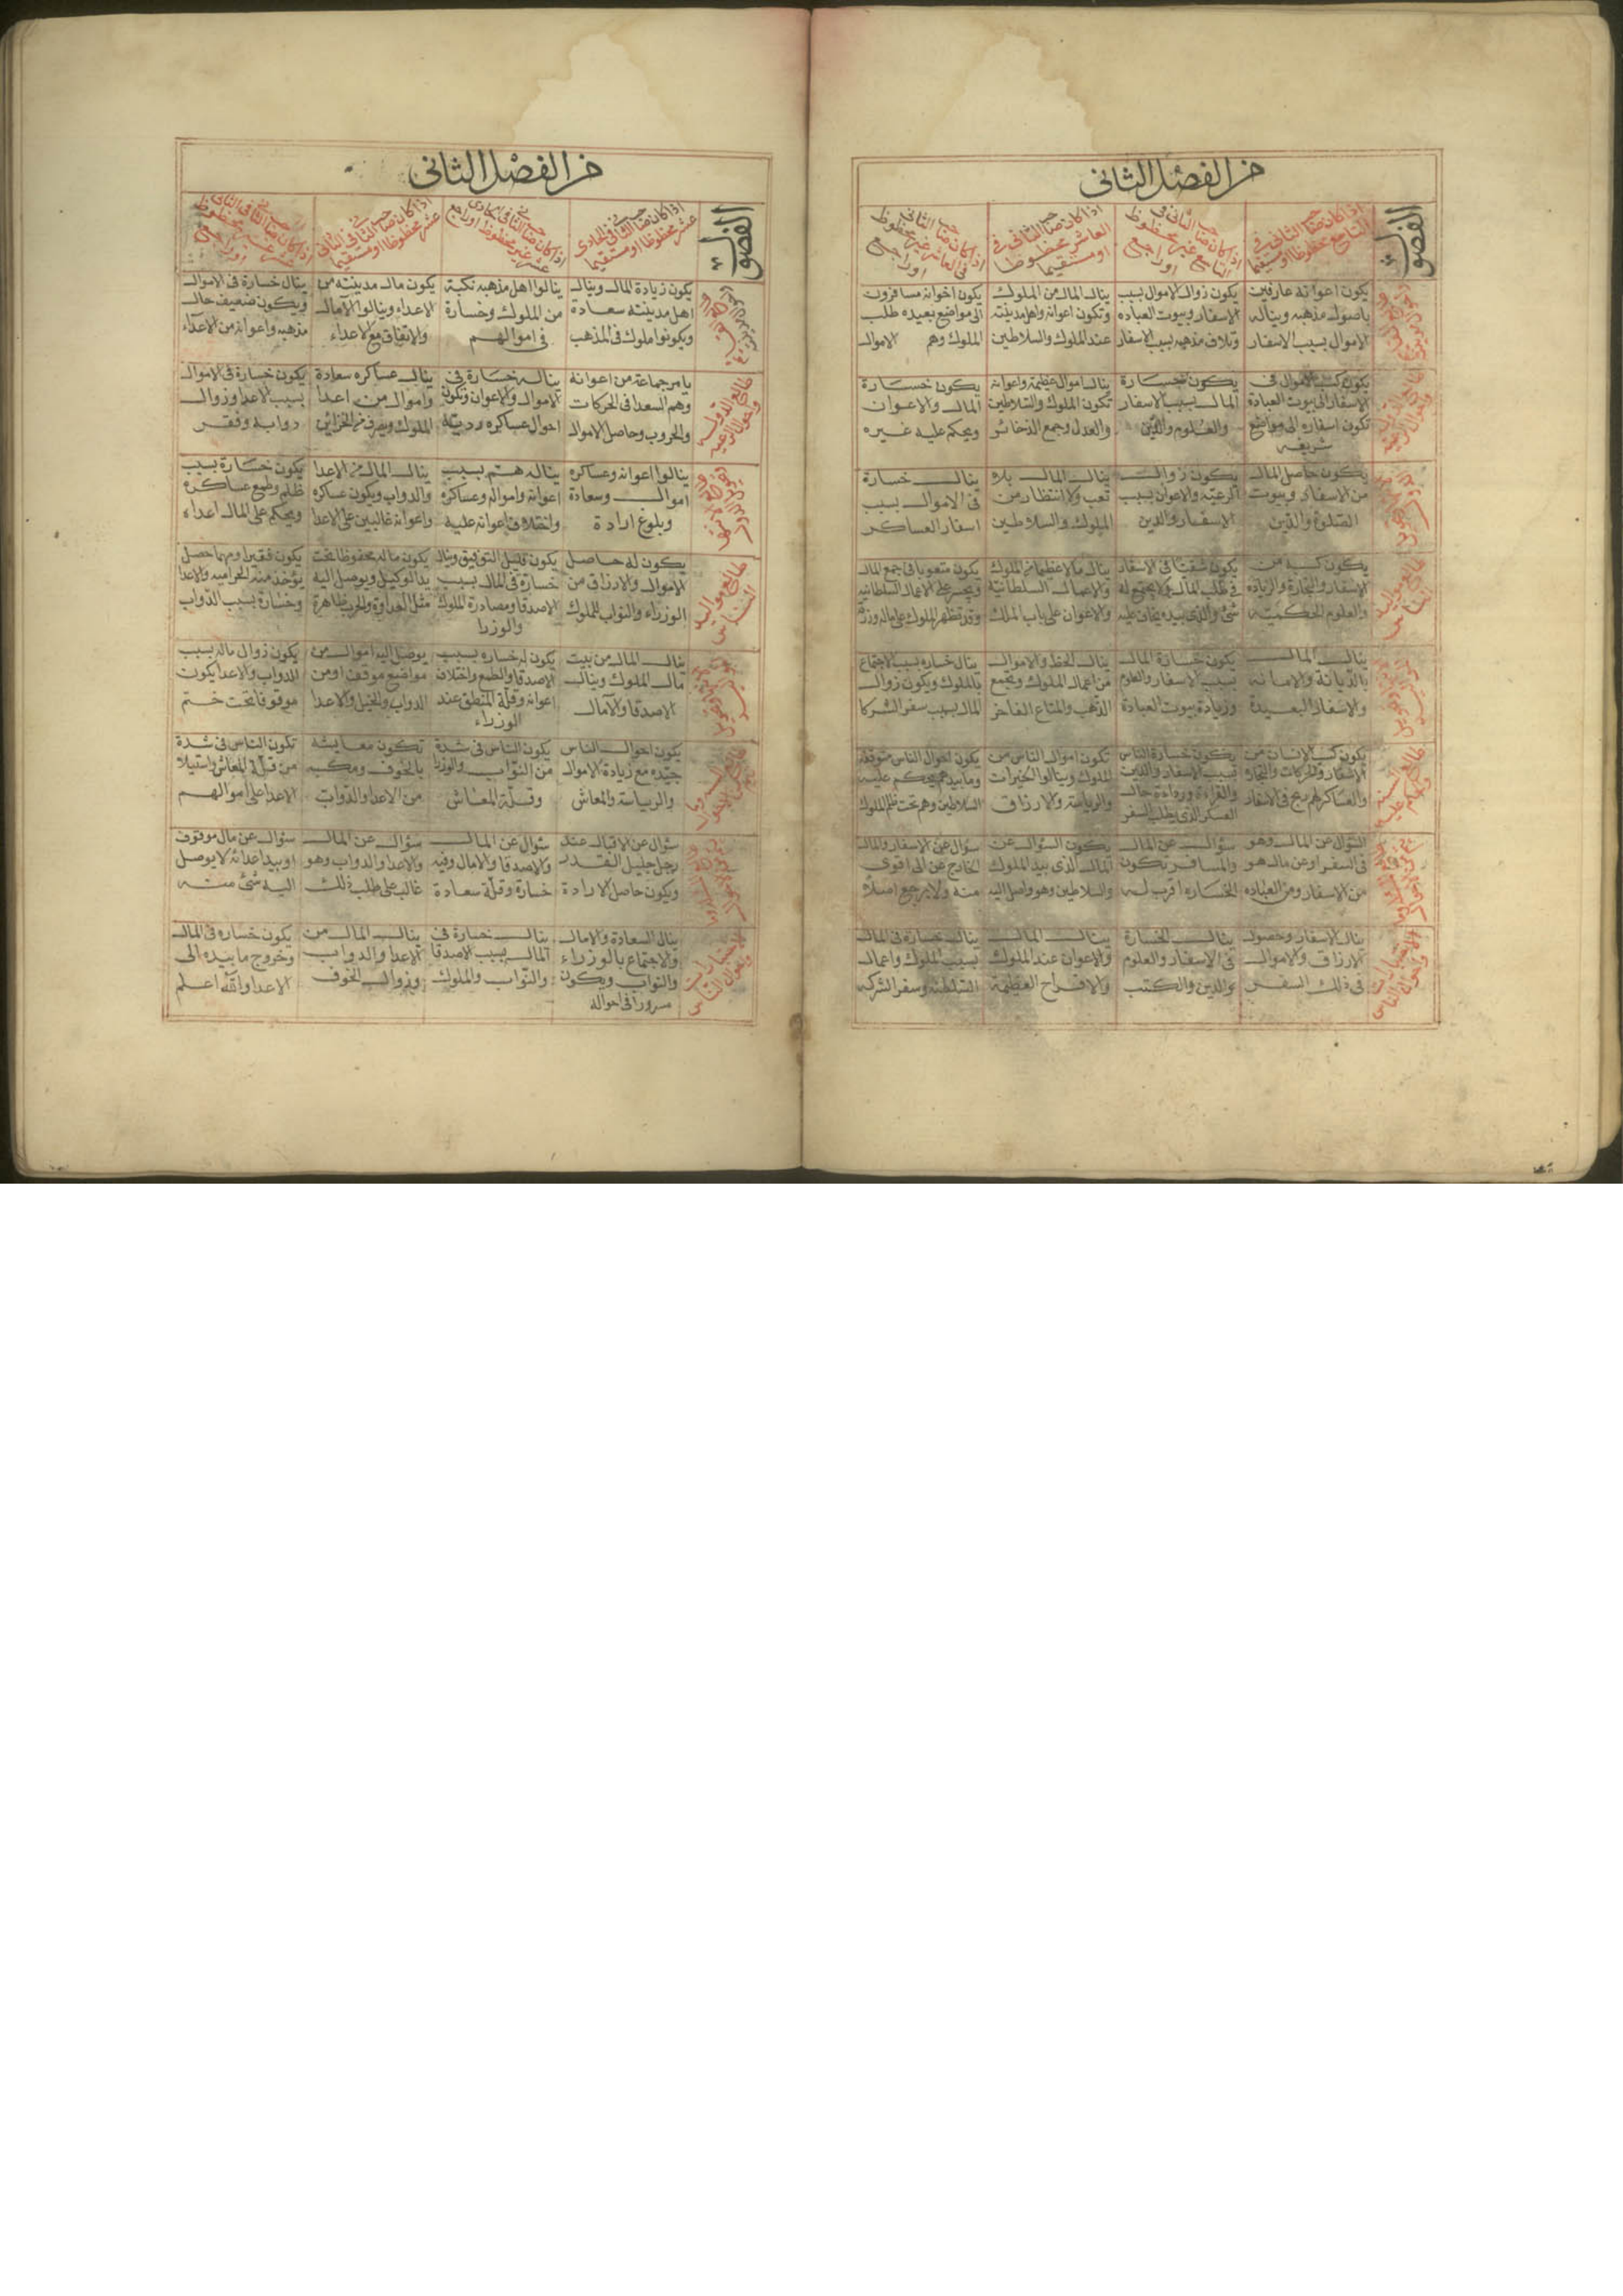 من الفصل الثاني
الفصول
اذا كان صاحب الثاني في
التاسع محفوظا او مستقيما
اذا كان صاحب الثاني في
التاسع غير محفوظ
او راجع
اذا كان صاحب الثاني في
العاشر محفوظا
او مستقيما
اذا كان صاحب الثاني
في العاشر غير محفوظ
او راجع
يكون اعوانه عارفين
باصول مذهبه ويناله
الاموال بسبب الاسفار
يكون زوال الاموال بسبب
الاسفار وبيوت العباده
وتلاف مذهبه بسبب الاسفار
ينال المال من الملوك
وتكون اعوانه واهل مدينته
عند الملوك والسلاطين
يكون اخوانه مسافرون
الى مواضع بعيده طلب
الملوك وهم الاموال
يكون كسب الاموال في
الاسفار الى بيوت العبادة
تكون اسفاره الى مواضع
شريفه
يكون خسارة
المال بسبب الاسفار
والعلوم والدين
ينال اموال عظيمة واعوانه
تكون الملوك والسلاطين
والعدل وجمع الذخائر
يكون خسارة
المال والاعوان
ويحكم عليه غيره
يكون حاصل المال
من الاسفار وبيوت
الصلوة والدين
يكون زوال
الرعيه والاعوان بسبب
الاسفار والدين
ينال المال بلا
تعب ولا انتظار من
الملوك والسلاطين
ينال خسارة
في الاموال بسبب
اسفار العساكر
يكون كسبه من
الاسفار والتجارة والزياده
والعلوم الحكميه
يكون شقتا في الاسفار
في طلب المال ولا يجتمع له
شئ والذي بيده يخاف عليه
ينال مالا عظيما من الملوك
والاعمال السلطانية
والاعوان على باب الملك
يكون متعوبا في جمع المال
ويجسر على الاعمال السلطانيه
وقد تظهر الملوك على ماله
ينال المال
بالديانة والامانه
والاسفار البعيدة
يكون خسارة المال
بسبب الاسفار والعلوم
وزيادة بيوت العبادة
ينال الحظ والاموال
من اعمال الملوك ويجمع
الذهب والمتاع الفاخر
ينال خساره بسبب الاجتماع
بالملوك ويكون زوال
المال بسبب سفر الشركا
يكون كسب الانسان من
الاسفار والحركات والتجار
والعساكر لهم ربح في الاسفار
يكون خسارة الناس
بسبب الاسفار والدين
والقراءة ورداءة حال
العسكر الذي يطلب السفر
تكون اموال الناس من
الملوك وينالوا الخيرات
والرياسة والارزاق
يكون احوال الناس متوقفه
وما بيدهم يحكم عليه
السلاطين وهم تحت ظلم الملوك
السؤال عن المال وهو
في السفر او عن مال هو
من الاسفار ومن العباده
سؤال عن المال
والمسافر تكون
الخساره اقرب له
يكون السؤال عن
المال الذي بيد الملوك
والسلاطين وهو واصل اليه
سؤال عن الاسفار والمال
الخارج عن الى اقوى
منه ولا يرجع اصلا
ينال الاسفار وحصول
الارزاق والاموال
في ذلك السفر
ينال الخسارة
في الاسفار والعلوم
والدين والكتب
ينال المال
والاعوان عند الملوك
والافراح العظيمة
ينال خسارة في المال
بسبب الملوك واعمال
السلطنه وسفر الشركه
من الفصل الثاني
الفصول
اذا كان صاحب الثاني في الحادي
عشر محفوظا او مستقيما
اذا كان صاحب الثاني في الحادي
عشر غير محفوظ او راجع
اذا كان صاحب الثاني في الثاني
عشر محفوظا او مستقيما
يكون زيادة المال وينال
اهل مدينته سعادة
ويكونوا ملوك في المذهب
ينالوا اهل مذهبه نكبة
من الملوك وخسارة
في اموالهم
يكون مال مدينته من
الاعداء وينالوا الآمال
والاتفاق مع الاعداء
ينال خسارة في الاموال
ويكون ضعيف حال
مذهبه واعوانه من الاعداء
طالع الدولة
واحوال الرعيه
يامر جماعة من اعوانه
وهم السعد في الحركات
والحروب وحاصل الاموال
يناله خسارة في
الاموال والاعوان وتكون
احوال عساكره ردية
ينال عساكره سعادة
واموال من اعدا
الملوك ويصرف من الخزائن
يكون خسارة في الاموال
بسبب الاعدا وزوال
دوابه وفقر
ينالوا اعوانه وعساكره
اموال وسعادة
وبلوغ ارادة
يناله هم بسبب
اعوانه وامواله وعساكره
واختلاف اعوانه عليه
ينال المال من الاعدا
والدواب ويكون عساكره
واعوانه غالبين على الاعدا
يكون خسارة بسبب
ظلم وطمع عساكره
ويحكم على المال اعداء
طالع مواليد
يكون له حاصل
الاموال والارزاق من
الوزراء والنواب للملوك
يكون قليل التوفيق وينال
خسارة في المال بسبب
الاصدقا ومصادرة الملوك
والوزرا
يكون ماله محفوظا تحت
يد الوكيل ويوصل اليه
مثل العداوة والحرب ظاهرة
يكون فقيرا ومهما حصل
يؤخذ منه الحراميه والاعدا
وخسارة بسبب الدواب
ينال المال من بيت
مال الملوك وينال
الاصدقا والآمال
يكون له خساره بسبب
الاصدقا والطمع واختلاف
اعوانه وقلة المنطق عند
الوزراء
يوصل اليه اموال من
مواضع موقفه او من
الدواب والخيل والاعدا
يكون زوال ماله بسبب
الدواب والاعدا يكون
موقوفا تحت ختم
يكون احوال الناس
جيده مع زيادة الاموال
والرياسة والمعاش
يكون الناس في شدة
من النواب والوزرا
وقلة المعاش
تكون معايشه
بالخوف ومكسبه
من الاعدا والدواب
تكون الناس في شدة
من قبلة المعاش واستيلا
الاعدا على اموالهم
سؤال عن الاقبال عند
رجل جليل القدر
ويكون حاصل الارادة
سؤال عن المال
والاصدقا والامال وفيه
خسارة وقلة سعادة
سؤال عن المال
والاعدا والدواب وهو
غالب على طلب ذلك
سؤال عن مال موقوف
او بيد اعدائه لا يوصل
اليه شئ منه
ينال السعادة والامال
والاجتماع بالوزراء
والنواب ويكون
مسرورا في احواله
ينال خسارة في
المال بسبب الاصدقا
والنواب والملوك
ينال المال من
الاعدا والدواب
وزوال الخوف
يكون خساره في المال
وخروج ما بيده الى
الاعدا والله اعلم